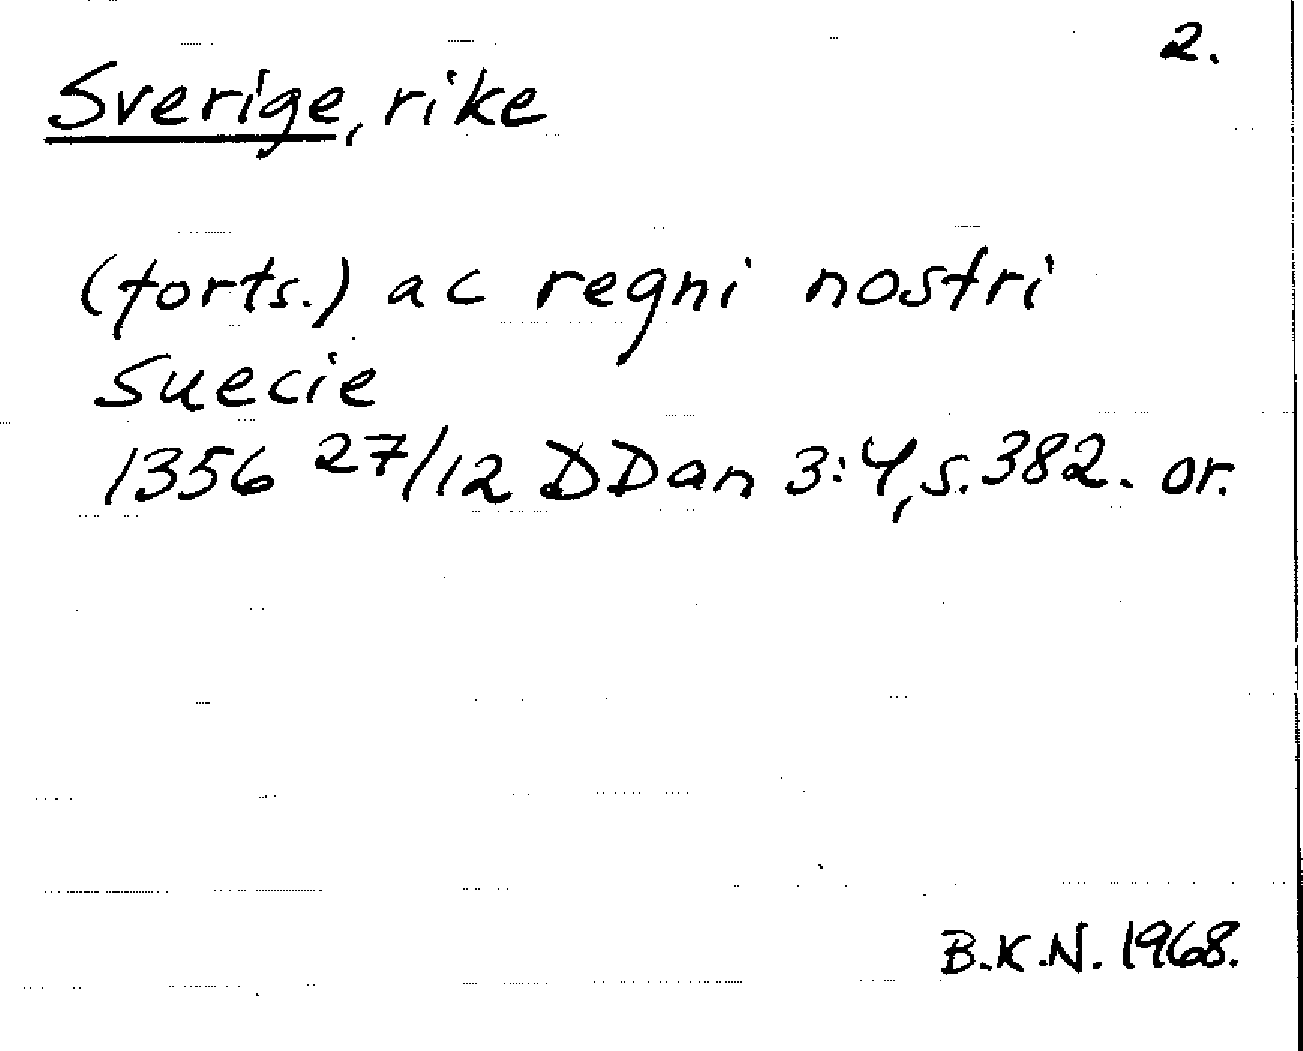 2.
Sverige, rike
(forts.) ac regni nostri
suecie
1356 27/12 DDan 3:4, s. 382. or.
B.K.N. 1968.